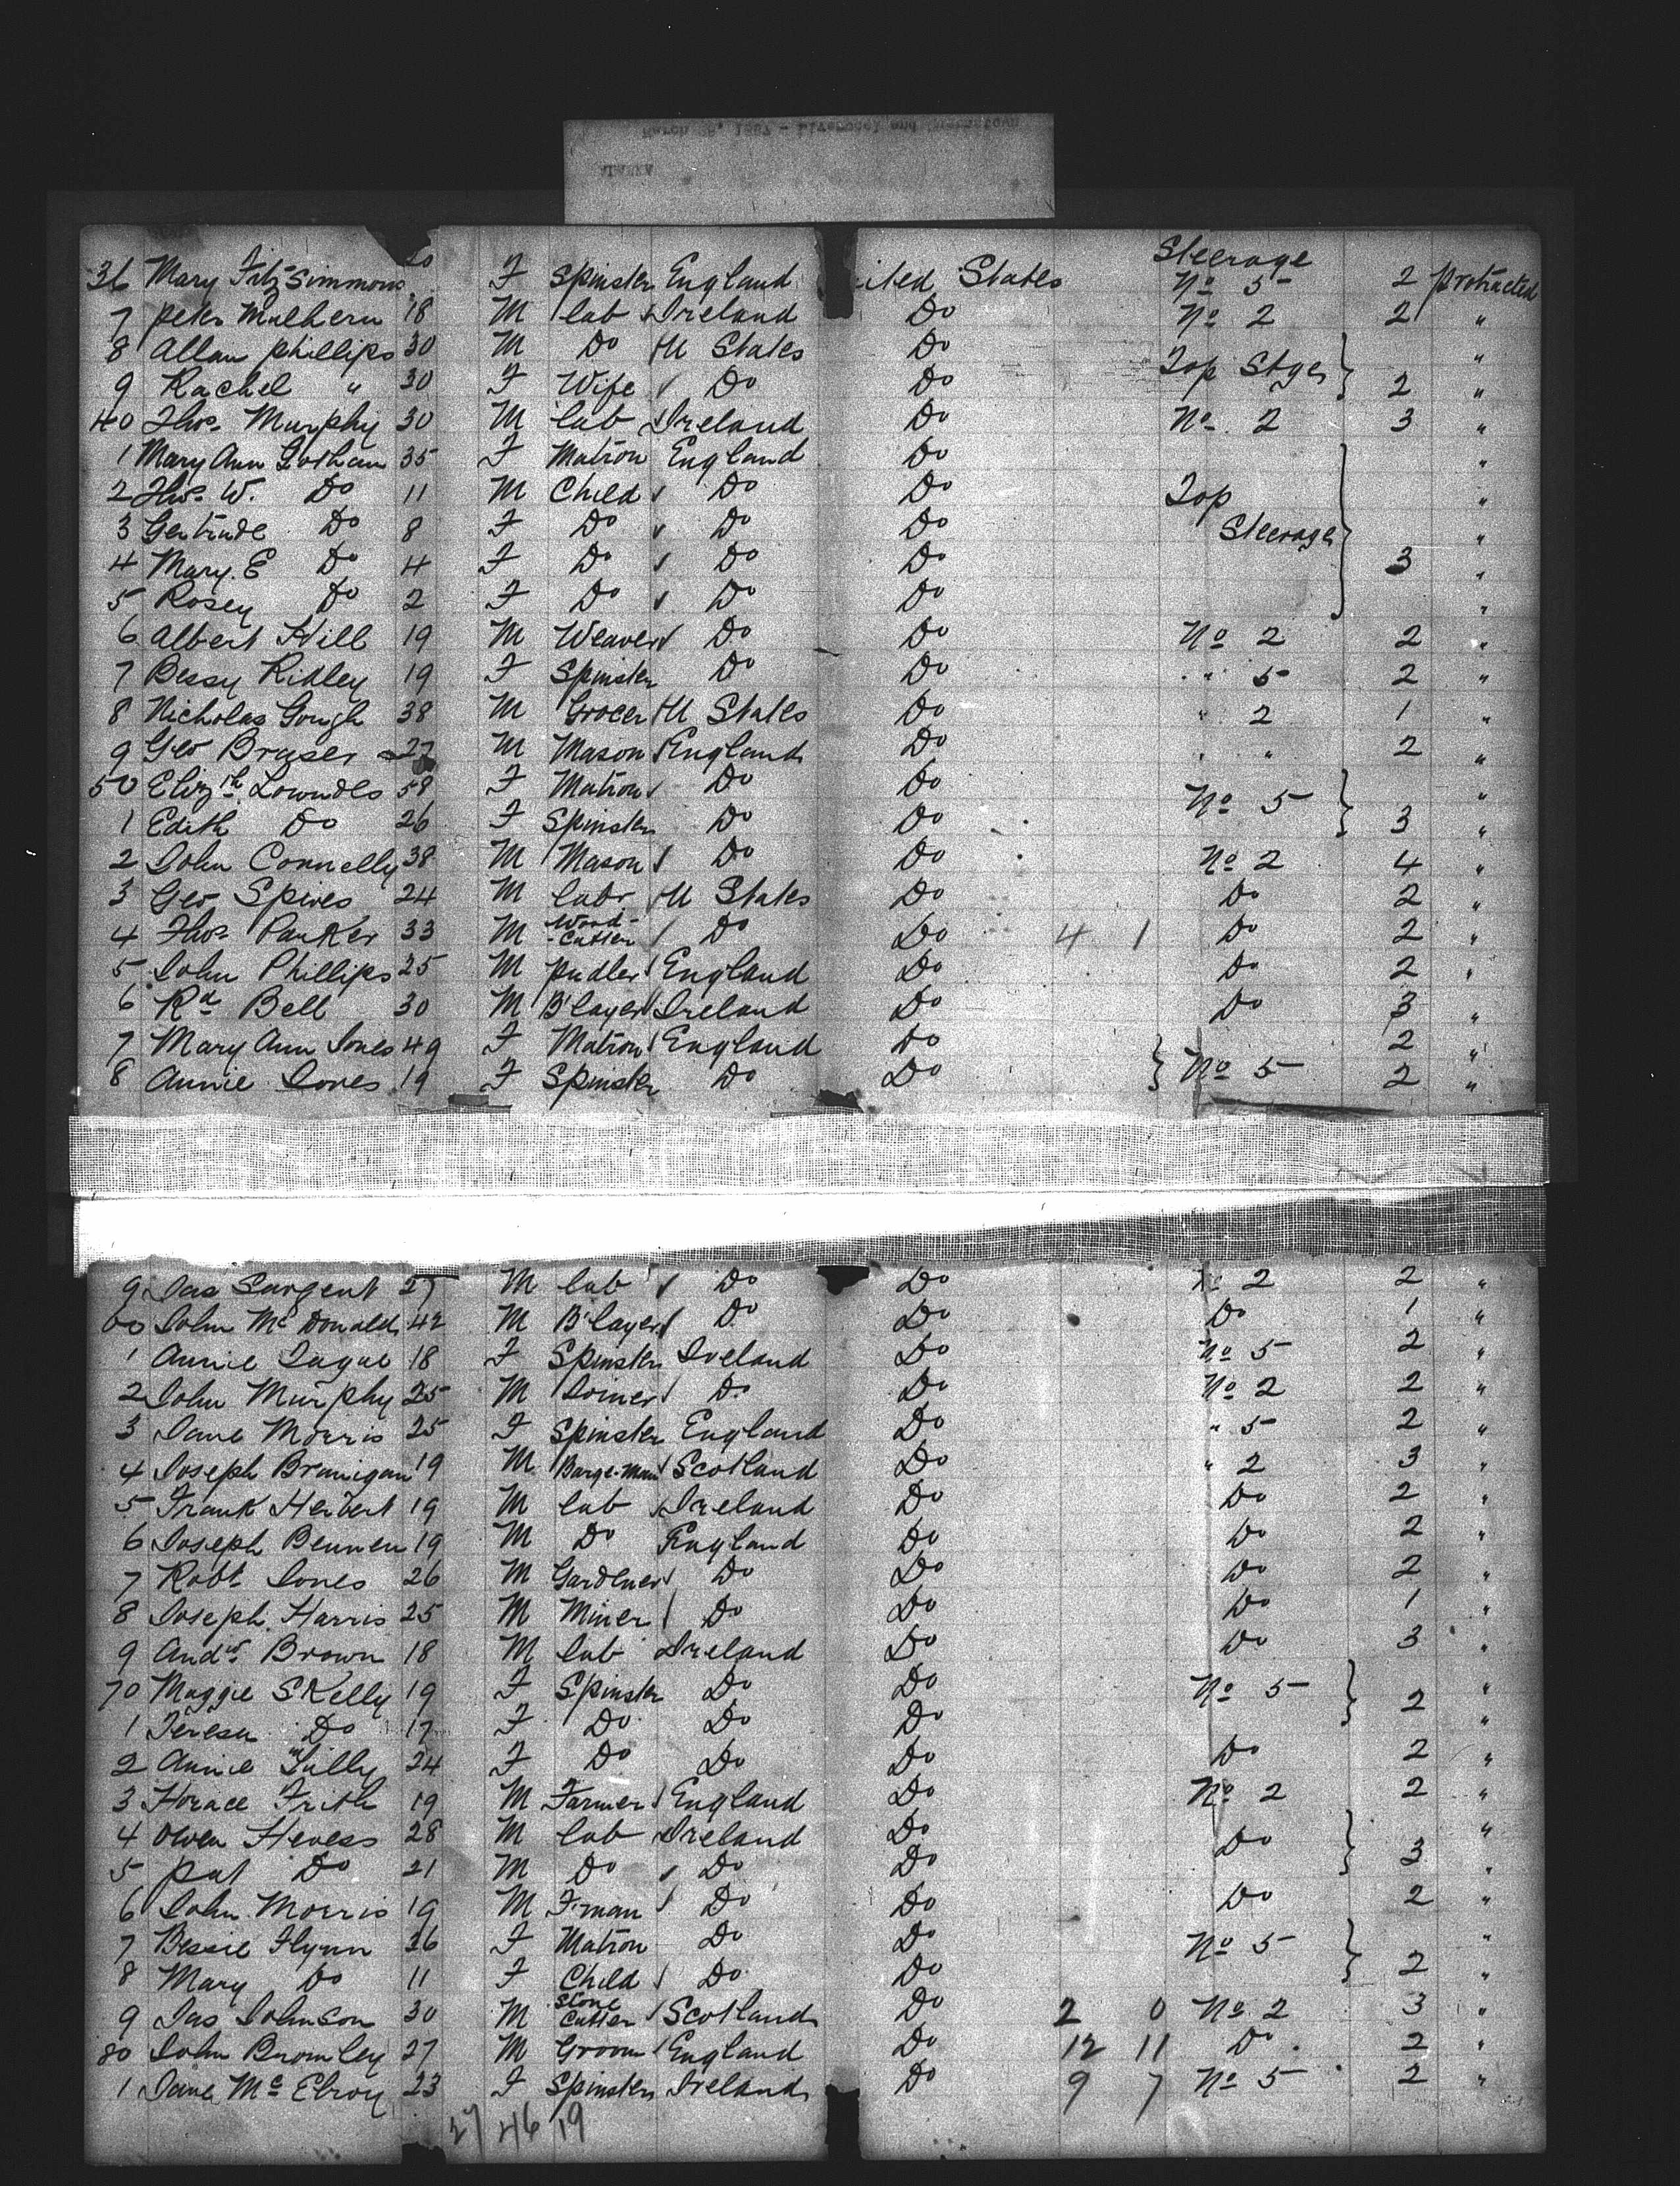 March 28, 1887 - Liverpool and Queenstown
ALASKA
Steerage
36 Mary Fitzsimmons 20 F Spinster England United States No 5 2 Protracted
7 Peter Mulhern 18 M lab Ireland Do No 2 2 "
8 Allan Phillips 30 M Do U States Do Top Stge "
9 Rachel " 30 F Wife Do Do 2 "
40 Thos Murphy 30 M lab Ireland Do No 2 3 "
1 Mary Ann Gotham 35 F Matron England Do "
2 Thos W. Do 11 M Child Do Do Top "
3 Gertrude Do 8 F Do Do Do Steerage "
4 Mary. E Do 4 F Do Do Do 3 "
5 Rosey Do 2 F Do Do Do "
6 Albert Hill 19 M Weaver Do Do No 2 2 "
7 Bessy Ridley 19 F Spinster Do Do " 5 2 "
8 Nicholas Gough 38 M Grocer U States Do " 2 1 "
9 Geo Braser 27 M Mason England Do " " 2 "
50 Elizth Lowndes 58 F Matron Do Do No 5 "
1 Edith Do 26 F Spinster Do Do 3 "
2 John Connelly 38 M Mason Do Do No 2 4 "
3 Geo Spires 24 M labr U States Do Do 2 "
4 Thos Parker 33 M Wood-Cutter Do Do 4 1 Do 2 "
5 John Phillips 25 M Pudler England Do Do 2 "
6 Rd Bell 30 M B'layer Ireland Do Do 3 "
7 Mary Ann Jones 49 F Matron England Do 2 "
8 Annie Jones 19 F Spinster Do Do No 5 2 "
9 Jas Sargent 27 M lab Do Do No 2 2 "
60 John McDonald 42 M B'layer Do Do Do 1 "
1 Annie Tague 18 F Spinster Ireland Do No 5 2 "
2 John Murphy 25 M Joiner Do Do No 2 2 "
3 Jane Morris 25 F Spinster England Do " 5 2 "
4 Joseph Branigan 19 M Barge-Man Scotland Do " 2 3 "
5 Frank Herbert 19 M lab Ireland Do Do 2 "
6 Joseph Bennen 19 M Do England Do Do 2 "
7 Robt Jones 26 M Gardener Do Do Do 2 "
8 Joseph Harris 25 M Miner Do Do Do 1 "
9 Andw Brown 18 M lab Ireland Do Do 3 "
70 Maggie Skelly 19 F Spinster Do Do No 5 2 "
1 Teresa Do 17 F Do Do Do "
2 Annie Tully 24 F Do Do Do Do 2 "
3 Horace Frith 19 M Farmer England Do No 2 2 "
4 Owen Heness 28 M lab Ireland Do Do "
5 Pat Do 21 M Do Do Do 3 "
6 John Morris 19 M F'man Do Do Do 2 "
7 Bessie Flynn 26 F Matron Do Do No 5 "
8 Mary Do 11 F Child Do Do 2 "
9 Jas Johnson 30 M Stone Cutter Scotland Do 2 0 No 2 3 "
80 John Bromley 27 M Groom England Do 12 11 Do 2 "
1 Jane McElroy 23 F Spinster Ireland Do 9 7 No 5 2 "
27 46 19